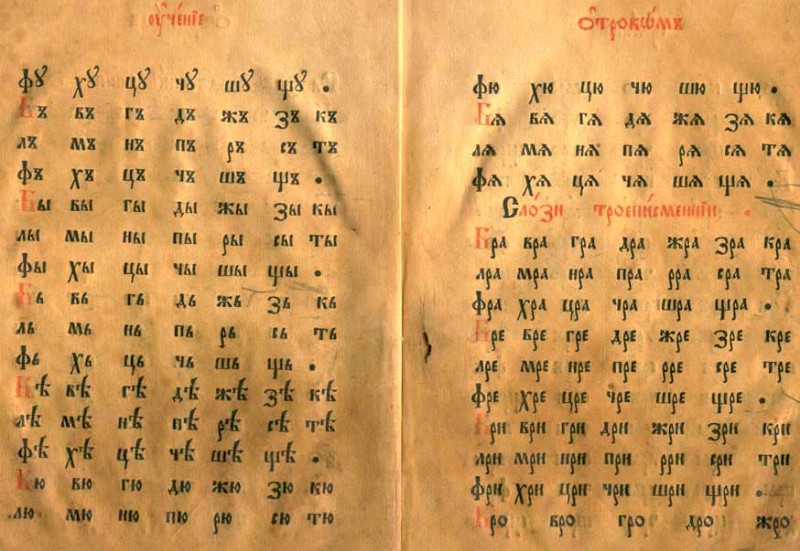 оуч҃е́нїе
фꙋ хꙋ цꙋ чꙋ шꙋ щꙋ .
Бъ въ гъ дъ жъ зъ къ
лъ мъ нъ пъ ръ съ тъ
фъ хъ цъ чъ шъ щъ .
Бы вы гы ды жы зы кы
лы мы ны пы ры сы ты
фы хы цы чы шы щы .
Бь вь гь дь жь зь кь
ль мь нь пь рь сь ть
фь хь ць чь шь щь .
Бѣ вѣ гѣ дѣ жѣ зѣ кѣ
лѣ мѣ нѣ пѣ рѣ сѣ тѣ
фѣ хѣ цѣ чѣ шѣ щѣ .
Бю вю гю дю жю зю кю
лю мю ню пю рю сю тю
ѻ҆трокѡ́мъ
фю хю цю чю шю щю .
Бѧ вѧ гѧ дѧ жѧ зѧ кѧ
лѧ мѧ нѧ пѧ рѧ сѧ тѧ
фѧ хѧ цѧ чѧ шѧ щѧ .
Сло́зи троепи́сменнїи .
Бра вра гра дра жра зра кра
лра мра нра пра рра сра тра
фра хра цра чра шра щра .
Бре вре гре дре жре зре кре
лре мре нре пре рре сре тре
фре хре цре чре шре щре .
Бри ври гри дри жри зри кри
лри мри нри при рри сри три
фри хри цри чри шри щри .
Бро вро гро дро жро